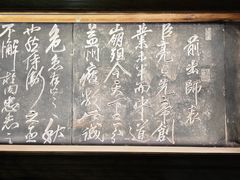 前出師表
臣亮言先帝創
業未半而中道
崩殂今天下三分
益州疲弊此誠
危急存亡之秋
也然侍衛之臣
不懈於內忠志之